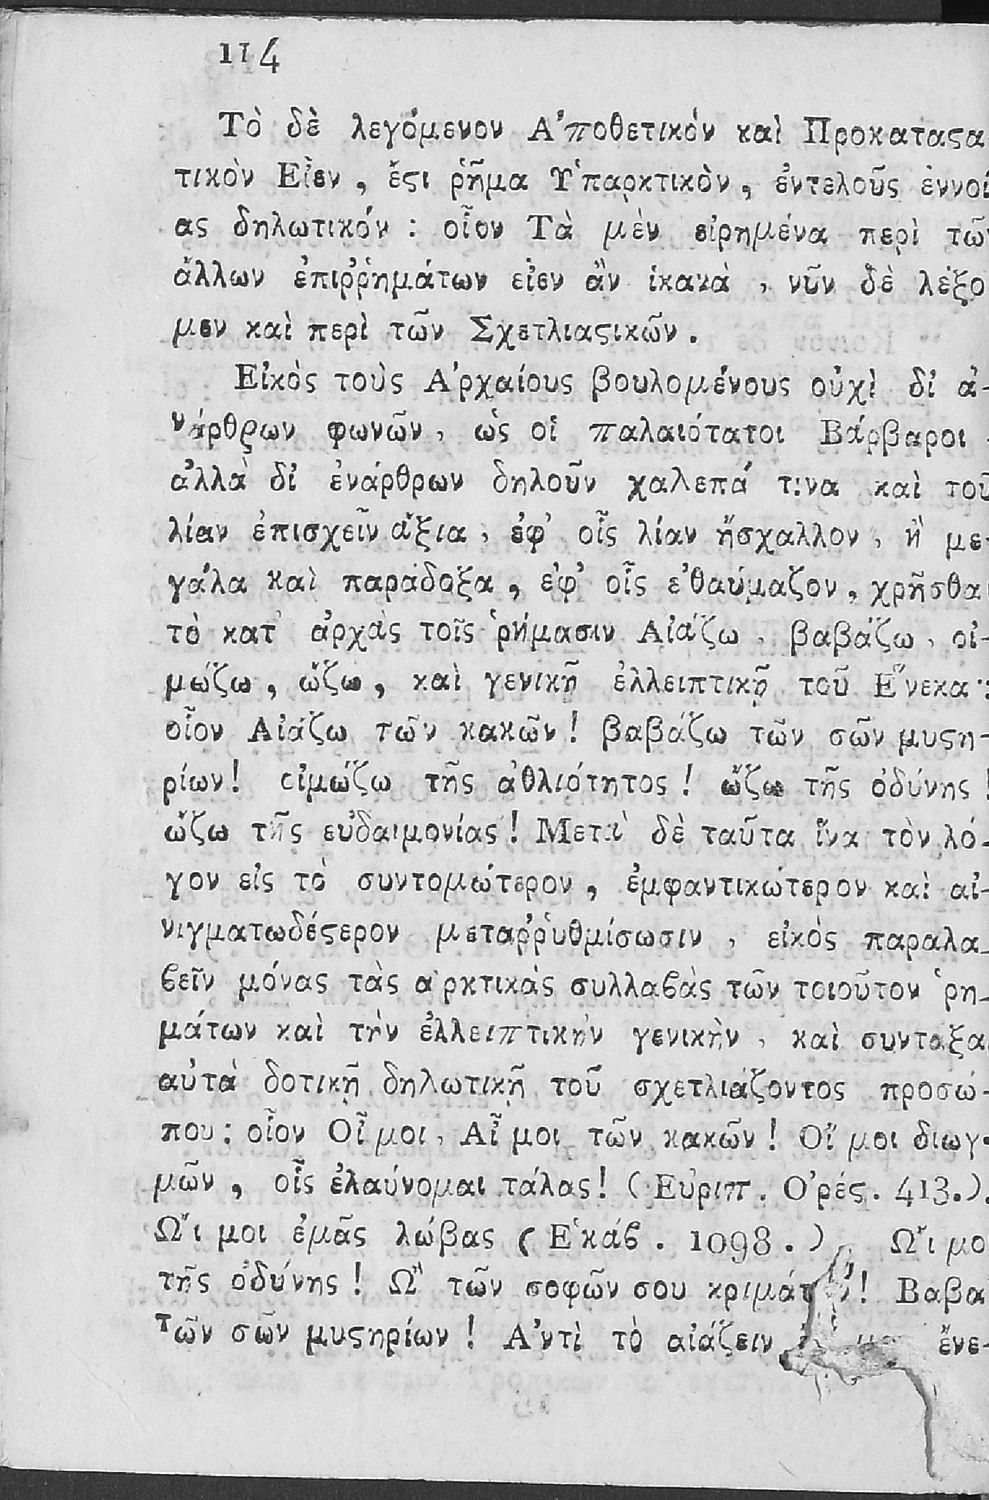 114
Τὸ δὲ λεγόμενον Ἀποθετικόν καὶ Προκαταϛα
τικὸν Εἶεν, ἔϛι ῥῆμα Ὑπαρκτικὸν, ἐντελοῦς ἐννοί
ας δηλωτικόν: οἷον Τὰ μὲν εἰρημένα περὶ τῶν
ἄλλων ἐπιῤῥημάτων εἶεν ἂν ἱκανὰ, νῦν δὲ λέξο
μεν καὶ περὶ τῶν Σχετλιαϛικῶν.
Εἰκὸς τοὺς Ἀρχαίους βουλομένους οὐχὶ δἰ ἀ-
νάρθρων φωνῶν, ὡς οἱ παλαιότατοι Βάρβαροι
ἀλλὰ δἰ ἐνάρθρων δηλοῦν χαλεπά τινα καὶ τοῦ
λίαν ἐπισχεῖν ἄξια, ἐφ' οἷς λίαν ἤσχαλλον, ἢ με-
γάλα καὶ παράδοξα, ἐφ' οἷς ἐθαύμαζον, χρῆσθαι
τὸ κατ' ἀρχὰς τοῖς ῥήμασιν Αἰάζω, βαβάζω, οἰ-
μώζω, ὤζω, καὶ γενικῇ ἐλλειπτικῇ τοῦ Ἕνεκα:
οἷον Αἰάζω τῶν κακῶν! βαβάζω τῶν σῶν μυϛη-
ρίων! οἰμώζω τῆς ἀθλιότητος! ὤζω τῆς ὀδύνης!
ὤζω τῆς εὐδαιμονίας! Μετὰ δὲ ταῦτα ἵνα τὸν λό-
γον εἰς τὸ συντομώτερον, ἐμφαντικώτερον καὶ αἰ-
νιγματωδέϛερον μεταῤῥυθμίσωσιν, εἰκὸς παραλα-
βεῖν μόνας τὰς ἀρκτικὰς συλλαβὰς τῶν τοιοῦτον ῥη-
μάτων καὶ τὴν ἐλλειπτικὴν γενικὴν, καὶ συνταξαι
αὐτὰ δοτικῇ δηλωτικῇ τοῦ σχετλιάζοντος προσώ-
που: οἷον Οἶ μοι, Αἶ μοι τῶν κακῶν! Οἴ μοι διωγ-
μῶν, οἷς ἐλαύνομαι τάλας! (Εὐριπ. Ὀρές. 413.).
Ὤι μοι ἐμᾶς λώβας (Ἑκάβ. 1098.) Ὤι μο
τῆς ὀδύνης! Ὢ τῶν σοφῶν σου κριμάτων! Βαβα
τῶν σῶν μυϛηρίων! Ἀντὶ τὸ αἰάζειν ἔνε-